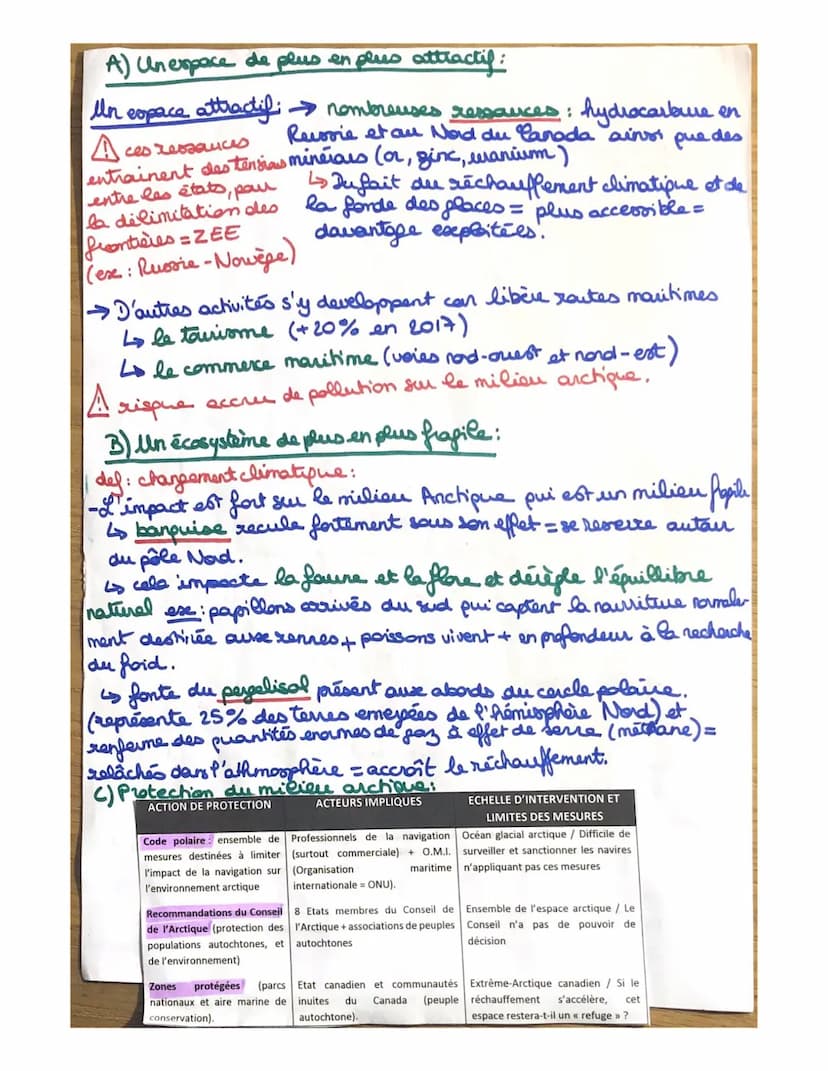 A) Un espace de plus en plus attractif :
Un espace attractif : → nombreuses ressources : hydrocarbure en
Russie et au Nord du Canada ainsi que des
minérais (or, zinc, uranium)
↳ Du fait du réchauffement climatique et de
la fonde des glaces = plus accessible =
davantage exploitées.
⚠ ces ressources
entrainent des tensions
entre les états, pour
la délimitation des
frontières = ZEE
(ex : Russie - Norvège)
→ D'autres activités s'y developpent car libère routes maritimes
↳ le tourisme (+20% en 2017)
↳ le commerce maritime (voies nord-ouest et nord-est)
⚠ risque accru de pollution sur le milieu arctique.
B) Un écosystème de plus en plus fragile :
def : changement climatique :
-L'impact est fort sur le milieu Arctique qui est un milieu fragile
↳ banquise recule fortement sous son effet = se resserre autour
du pôle Nord.
↳ cela impacte la faune et la flore et dérègle l'équilibre
naturel ex : papillons arrivés du sud qui captent la nourriture normale-
ment destinée aux rennes + poissons vivent + en profondeur à la recherche
du froid.
↳ fonte du pergélisol présent aux abords du cercle polaire.
(représente 25% des terres émergées de l'hémisphère Nord) et
renferme des quantités énormes de gaz à effet de serre (méthane) =
relâchés dans l'athmosphère = accroît le réchauffement.
C) Protection du milieu arctique :
ACTION DE PROTECTION
ACTEURS IMPLIQUES
ECHELLE D'INTERVENTION ET
LIMITES DES MESURES
Code polaire : ensemble de
mesures destinées à limiter
l'impact de la navigation sur
l'environnement arctique
Professionnels de la navigation
(surtout commerciale) + O.M.I.
(Organisation maritime
internationale = ONU).
Océan glacial arctique / Difficile de
surveiller et sanctionner les navires
n'appliquant pas ces mesures
Recommandations du Conseil
de l'Arctique (protection des
populations autochtones, et
de l'environnement)
8 Etats membres du Conseil de
l'Arctique + associations de peuples
autochtones
Ensemble de l'espace arctique / Le
Conseil n'a pas de pouvoir de
décision
Zones protégées (parcs
nationaux et aire marine de
conservation).
Etat canadien et communautés
inuites du Canada (peuple
autochtone).
Extrême-Arctique canadien / Si le
réchauffement s'accélère, cet
espace restera-t-il un « refuge » ?